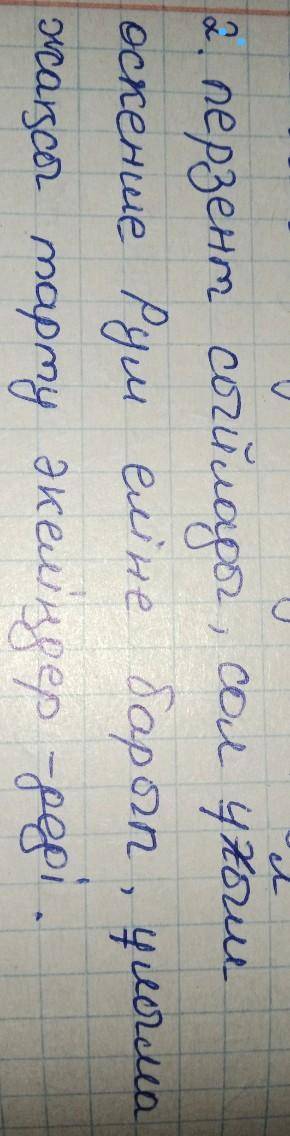 2. перзент сыйлады, сол ұлым
өскенше Рум еліне барып, ұлыма
жақсы тарту әкеліңдер - деді.